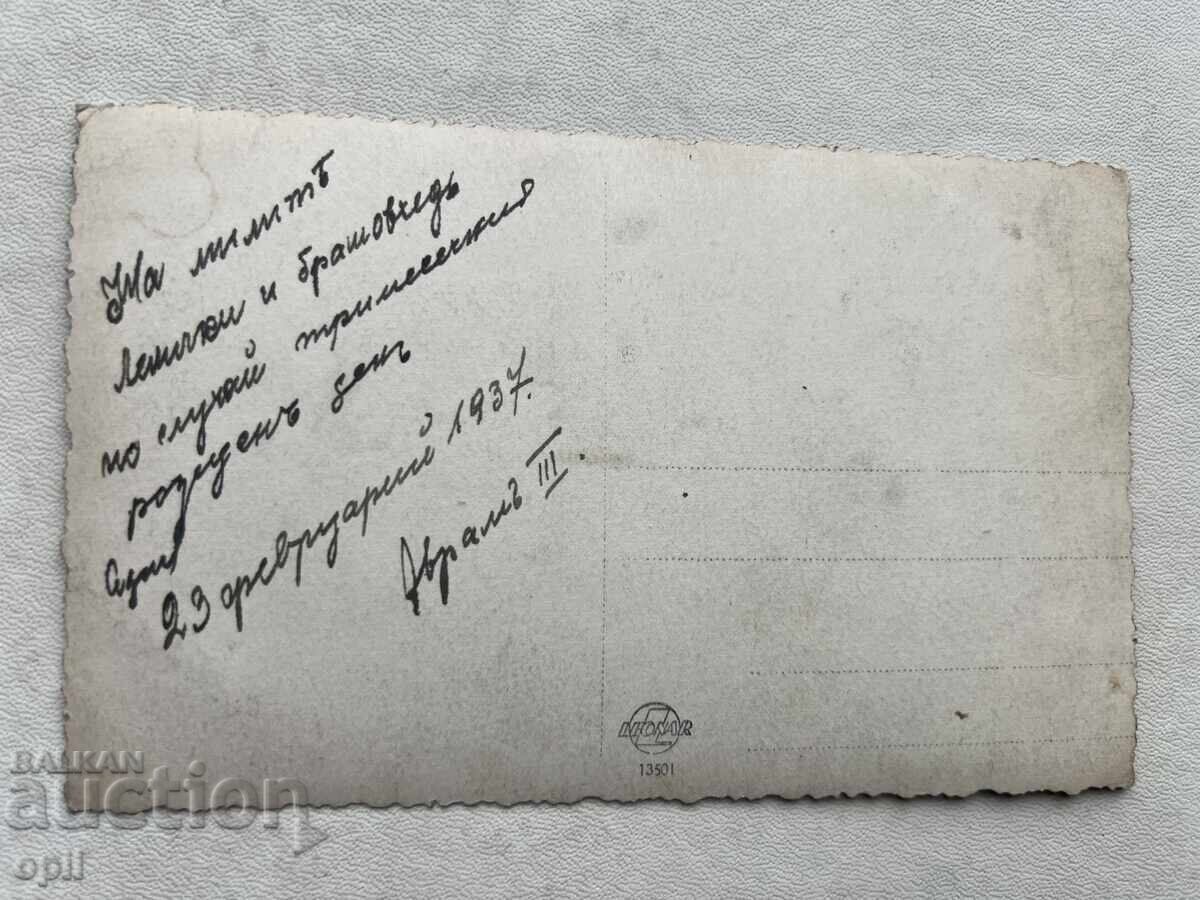 На милитѣ
лелички и братовчедъ
по случай тримесечния
рожденъ денъ
23 февруарий 1937.
Аврамъ III
LEONAR
13501
BALKAN
auction
opll